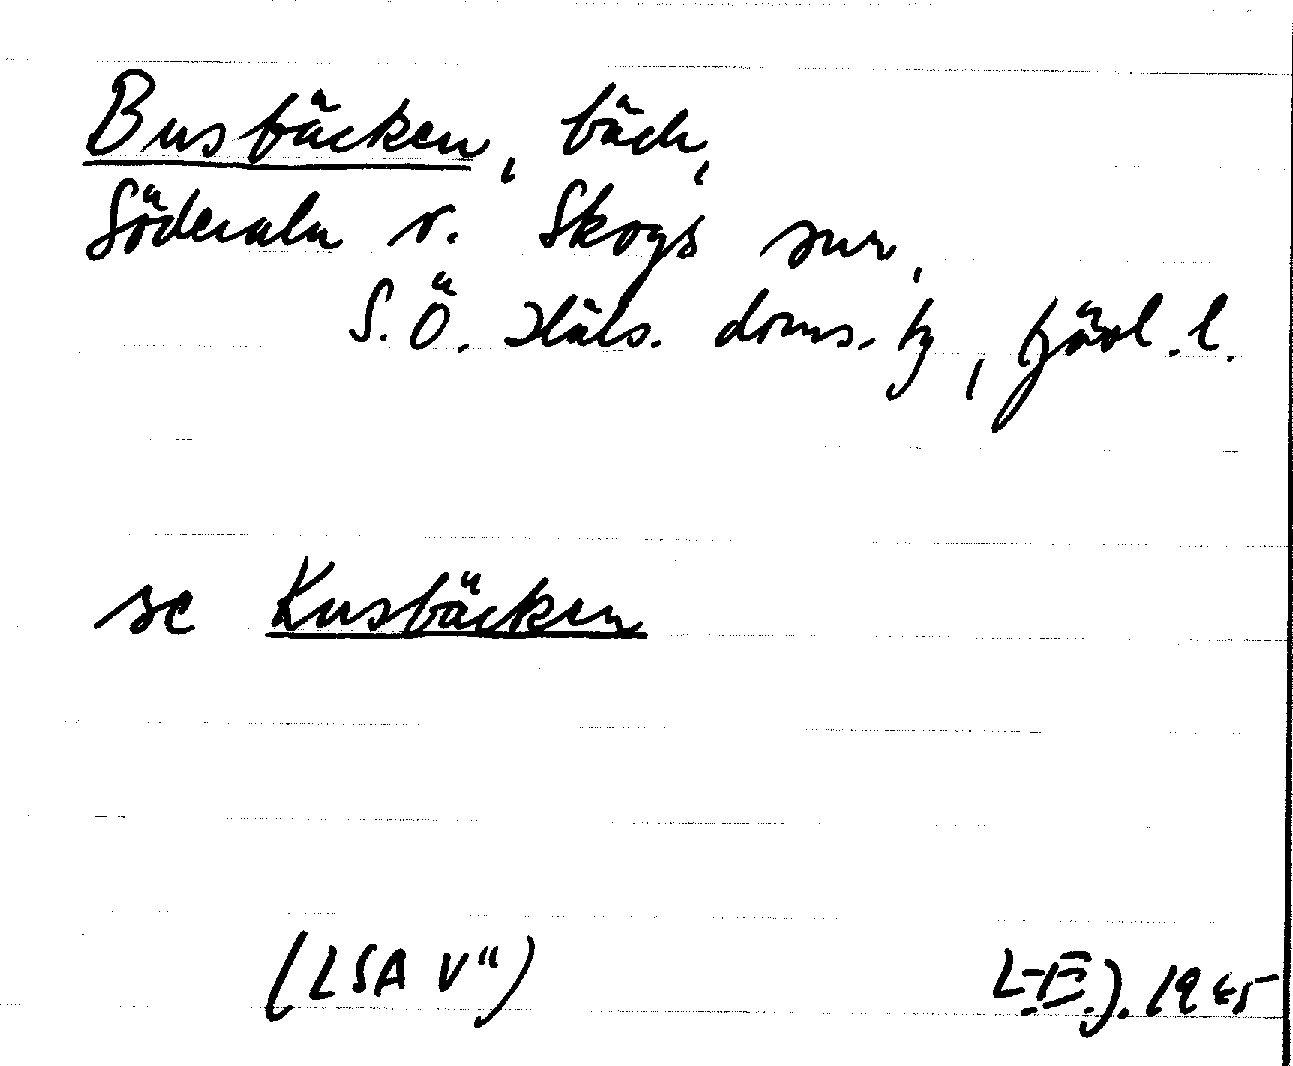 Busbäcken, bäck,
Söderala o. Skogs snr,
S.Ö. Häls. doms. tg, Gävl. l.
se Kusbäcken
(LSA V")
1945